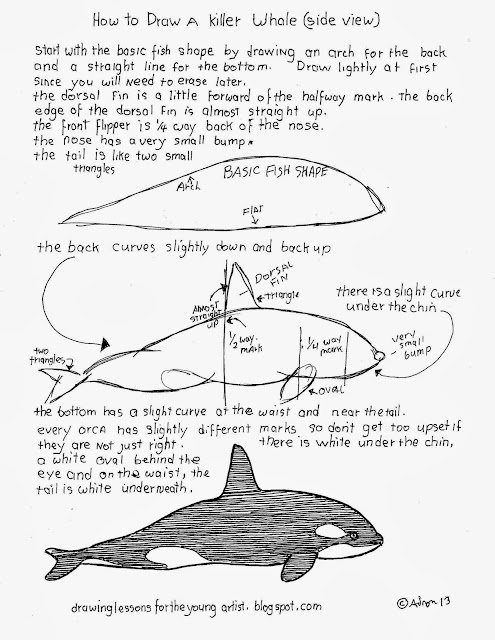 How to Draw A Killer Whale (side view)
Start with the basic fish shape by drawing an arch for the back
and a straight line for the bottom. Draw lightly at first
since you will need to erase later.
the dorsal fin is a little forward of the halfway mark. The back
edge of the dorsal fin is almost straight up.
the front flipper is 1/4 way back of the nose.
the nose has a very small bump.
the tail is like two small
triangles
BASIC FISH SHAPE
Arch
FLAT
the back curves slightly down and back up
DORSAL
FIN
triangle
ALMOST
straight
up
there is a slight curve
under the chin
1/2 way
mark
1/4 way
mark
very
small
bump
two
triangles
OVAL
the bottom has a slight curve at the waist and near the tail.
every orca has slightly different marks so don't get too upset if
they are not just right.
there is white under the chin,
a white oval behind the
eye and on the waist, the
tail is white underneath.
drawinglessonsfortheyoungartist.blogspot.com
© Adron 13